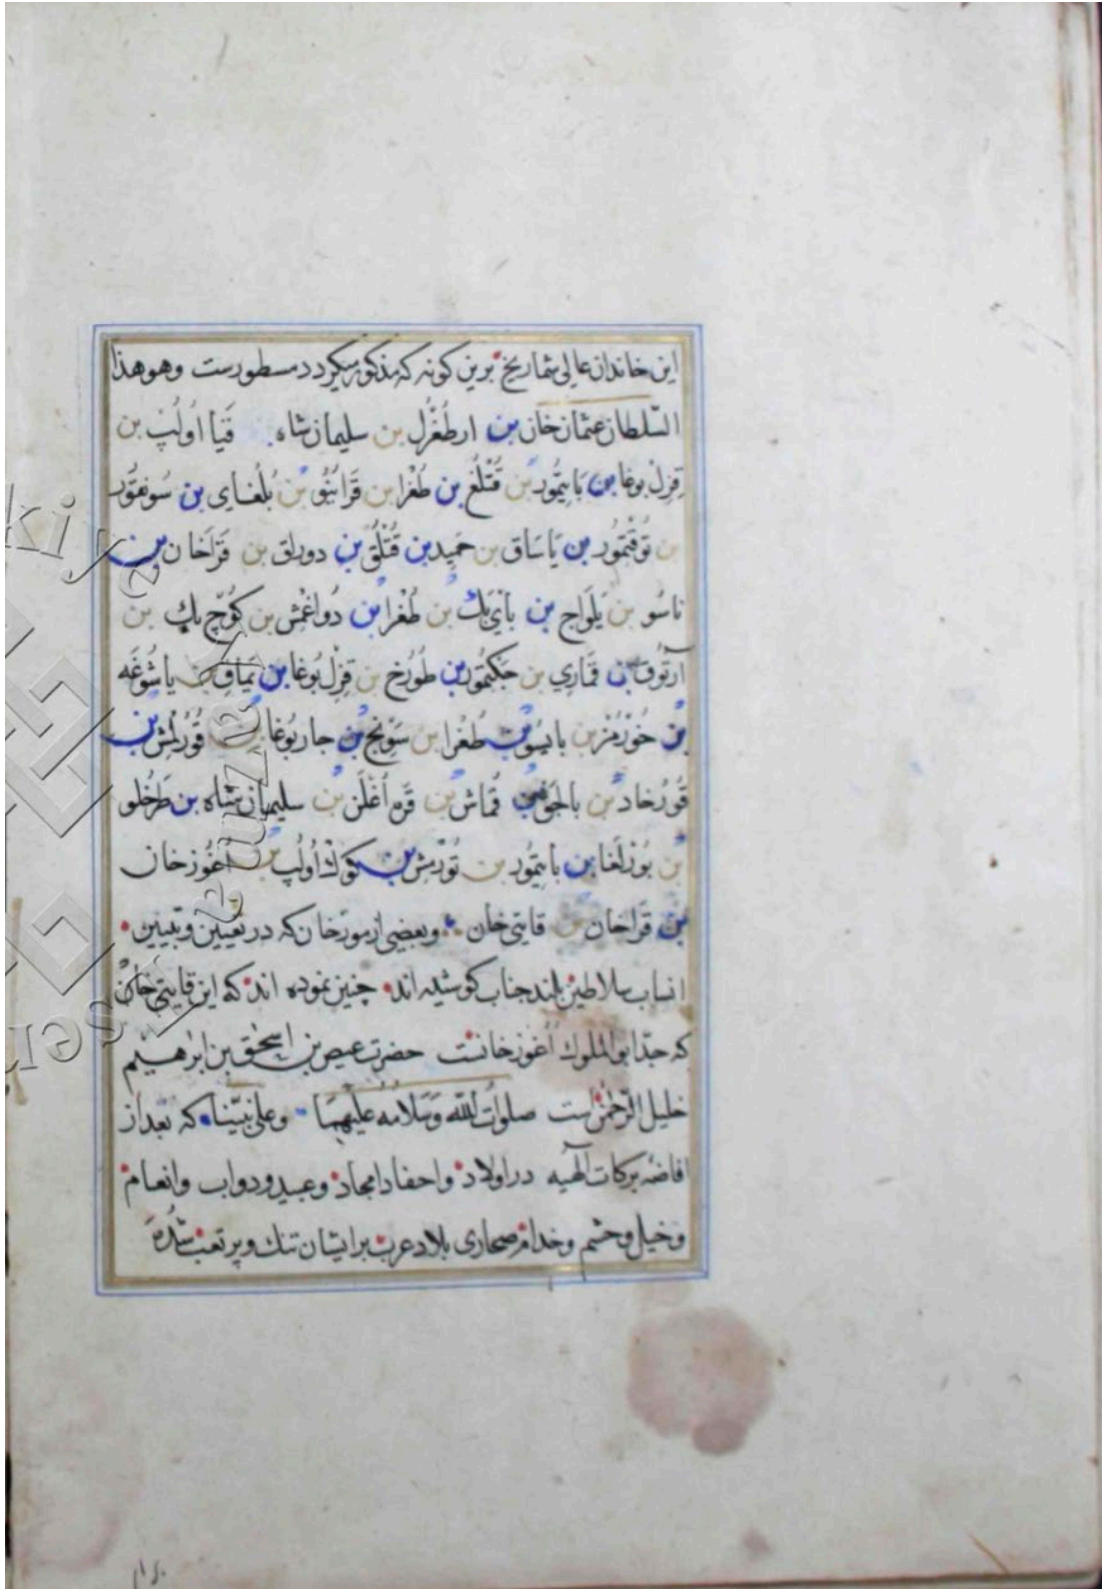 این خاندان عالی شماریخ برین کونه که مذکور میکردد مسطورست وهوهذا
السّلطان عثمان خان بن ارطُغرُل بن سلیمان شاه قَیا اُولُپ بن
قِزِلْ بوغا بن بَایتِمُور بن قُتْلُغ بن طُغْرا بن قَرَا بن بُلْغای بن سُونقُور
بن تُوقْتَمُور بن یَاسَاق بن حَمِید بن قُتْلُق بن دورلق بن قَرَاخان بن
یَلَواج بن بَایْ بَك بن طُغْرا بن دُواغْمِش بن کُوچ بك بن
آرتُوق بن قَمَارِي بن جَکتمُور بن طُورَخ بن قِزِلْ بُوغا بن یَمَاق بن
بن خُوْرْمُز بن طُغْرا بن سَوِنْج بن جاربُوغا بن قُورْلمِش بن
قُورْخاد بن قُمَاش بن قَرَه اُغْلَن بن سلیمان شاه بن
بن بن بایتِمُور بن تُوْرْمِش بن کوك اُولُپ بن اُغُوز خان
بن قَرَاخان بن قایتی خان وبعضی از مورّخان که در تعیین وتبیین
انساب سلاطین بلند جناب کوشیده اند چنین نموده اند که این قایتی خان
که جدّ ابوالملوك اُغوز خانست حضرت عیص بن اسحٰق بن ابرٰهیم
خلیل الرّحمٰن است صلوات اللّٰه وَسَلامُه علیهما وعلی نبیّنا که بعد از
افاضهٔ برکات الٓهیه در اولاد واحفاد امجاد وعبید ودواب وانعام
وخیل وحشم وخدام صحاری بلاد عرب برایشان تنك وپر تعب شُده